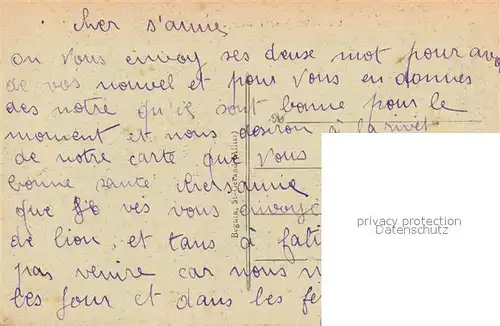 cher s'amie
on vous envoy ses deuse mot pour avoi
de vos nouvel et pour vous en donnes
des notre qu'ils sont bonne pour le
moment et nous desiron à la rivet
de notre carte que vous
bonne sante cher s'amie
que vous envoyé
de lion, et tans à
pas venire car nous
les jour et dans les
Beguin, St-Gerand (Allier)
privacy protection
Datenschutz